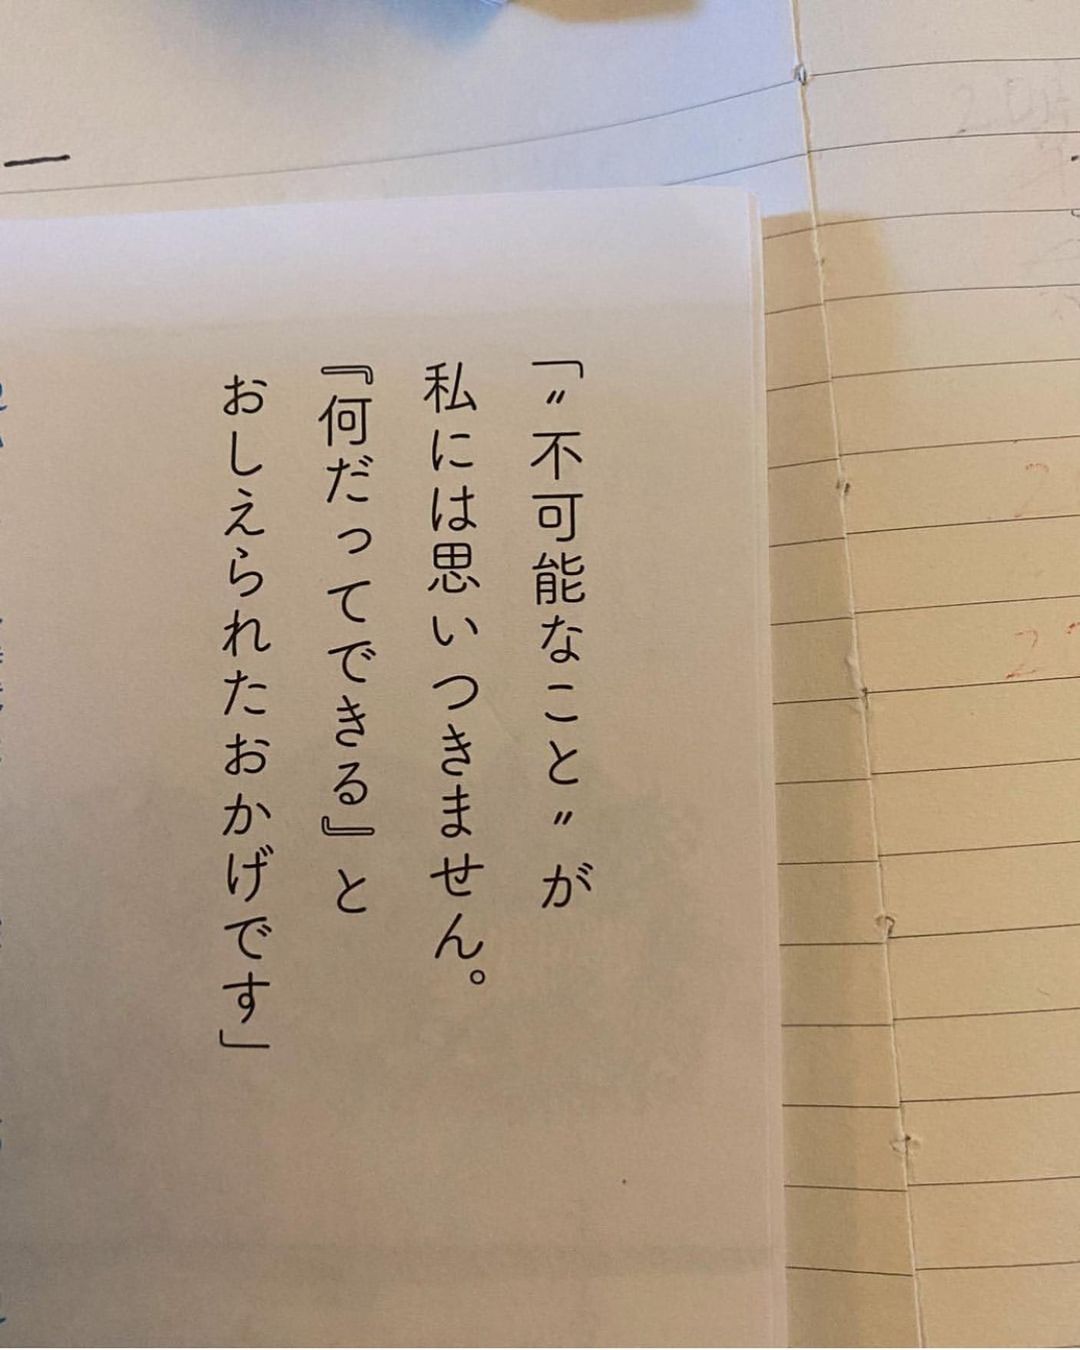 「〝不可能なこと〟が
私には思いつきません。
『何だってできる』と
おしえられたおかげです」